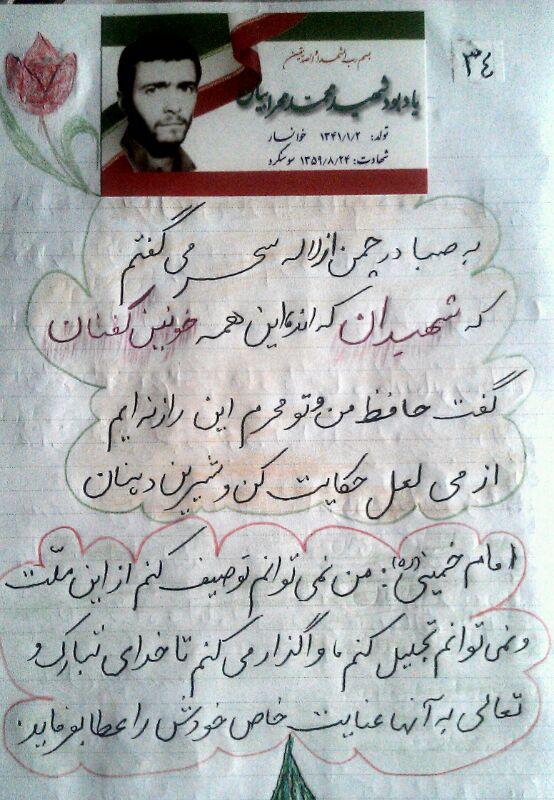 ۳٤
بسم رب الشهداء والصدیقین
یادبود شهید محمد مهرابیان
تولد: ۱۳۴۱/۱/۲ خوانسار
شهادت: ۱۳۵۹/۸/۲۴ سوسنگرد
به صبا در چمن از لاله سحر می گفتم
که شهیدان که اند این همه خونین کفنان
گفت حافظ من و تو محرم این راز نه ایم
از می لعل حکایت کن و شیرین دهنان
امام خمینی (ره): من نمی توانم توصیف کنم از این ملّت
و نمی توانم تجلیل کنم ما واگذار می کنم تا خدای تبارک و
تعالی به آنها عنایت خاص خودش را عطا بفرماید.